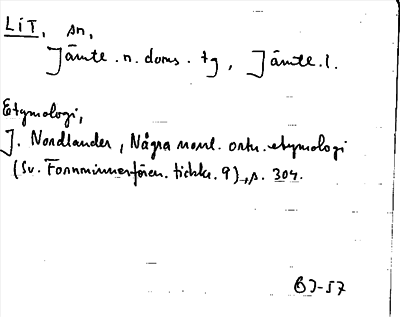 LIT, sn,
Jämte. n. doms. tg, Jämte. l.
Etymologi,
J. Nordlander, Några norrl. ortn. etymologi
(Sv. Fornminnesfören. tidskr. 9), s. 304.
BJ-57